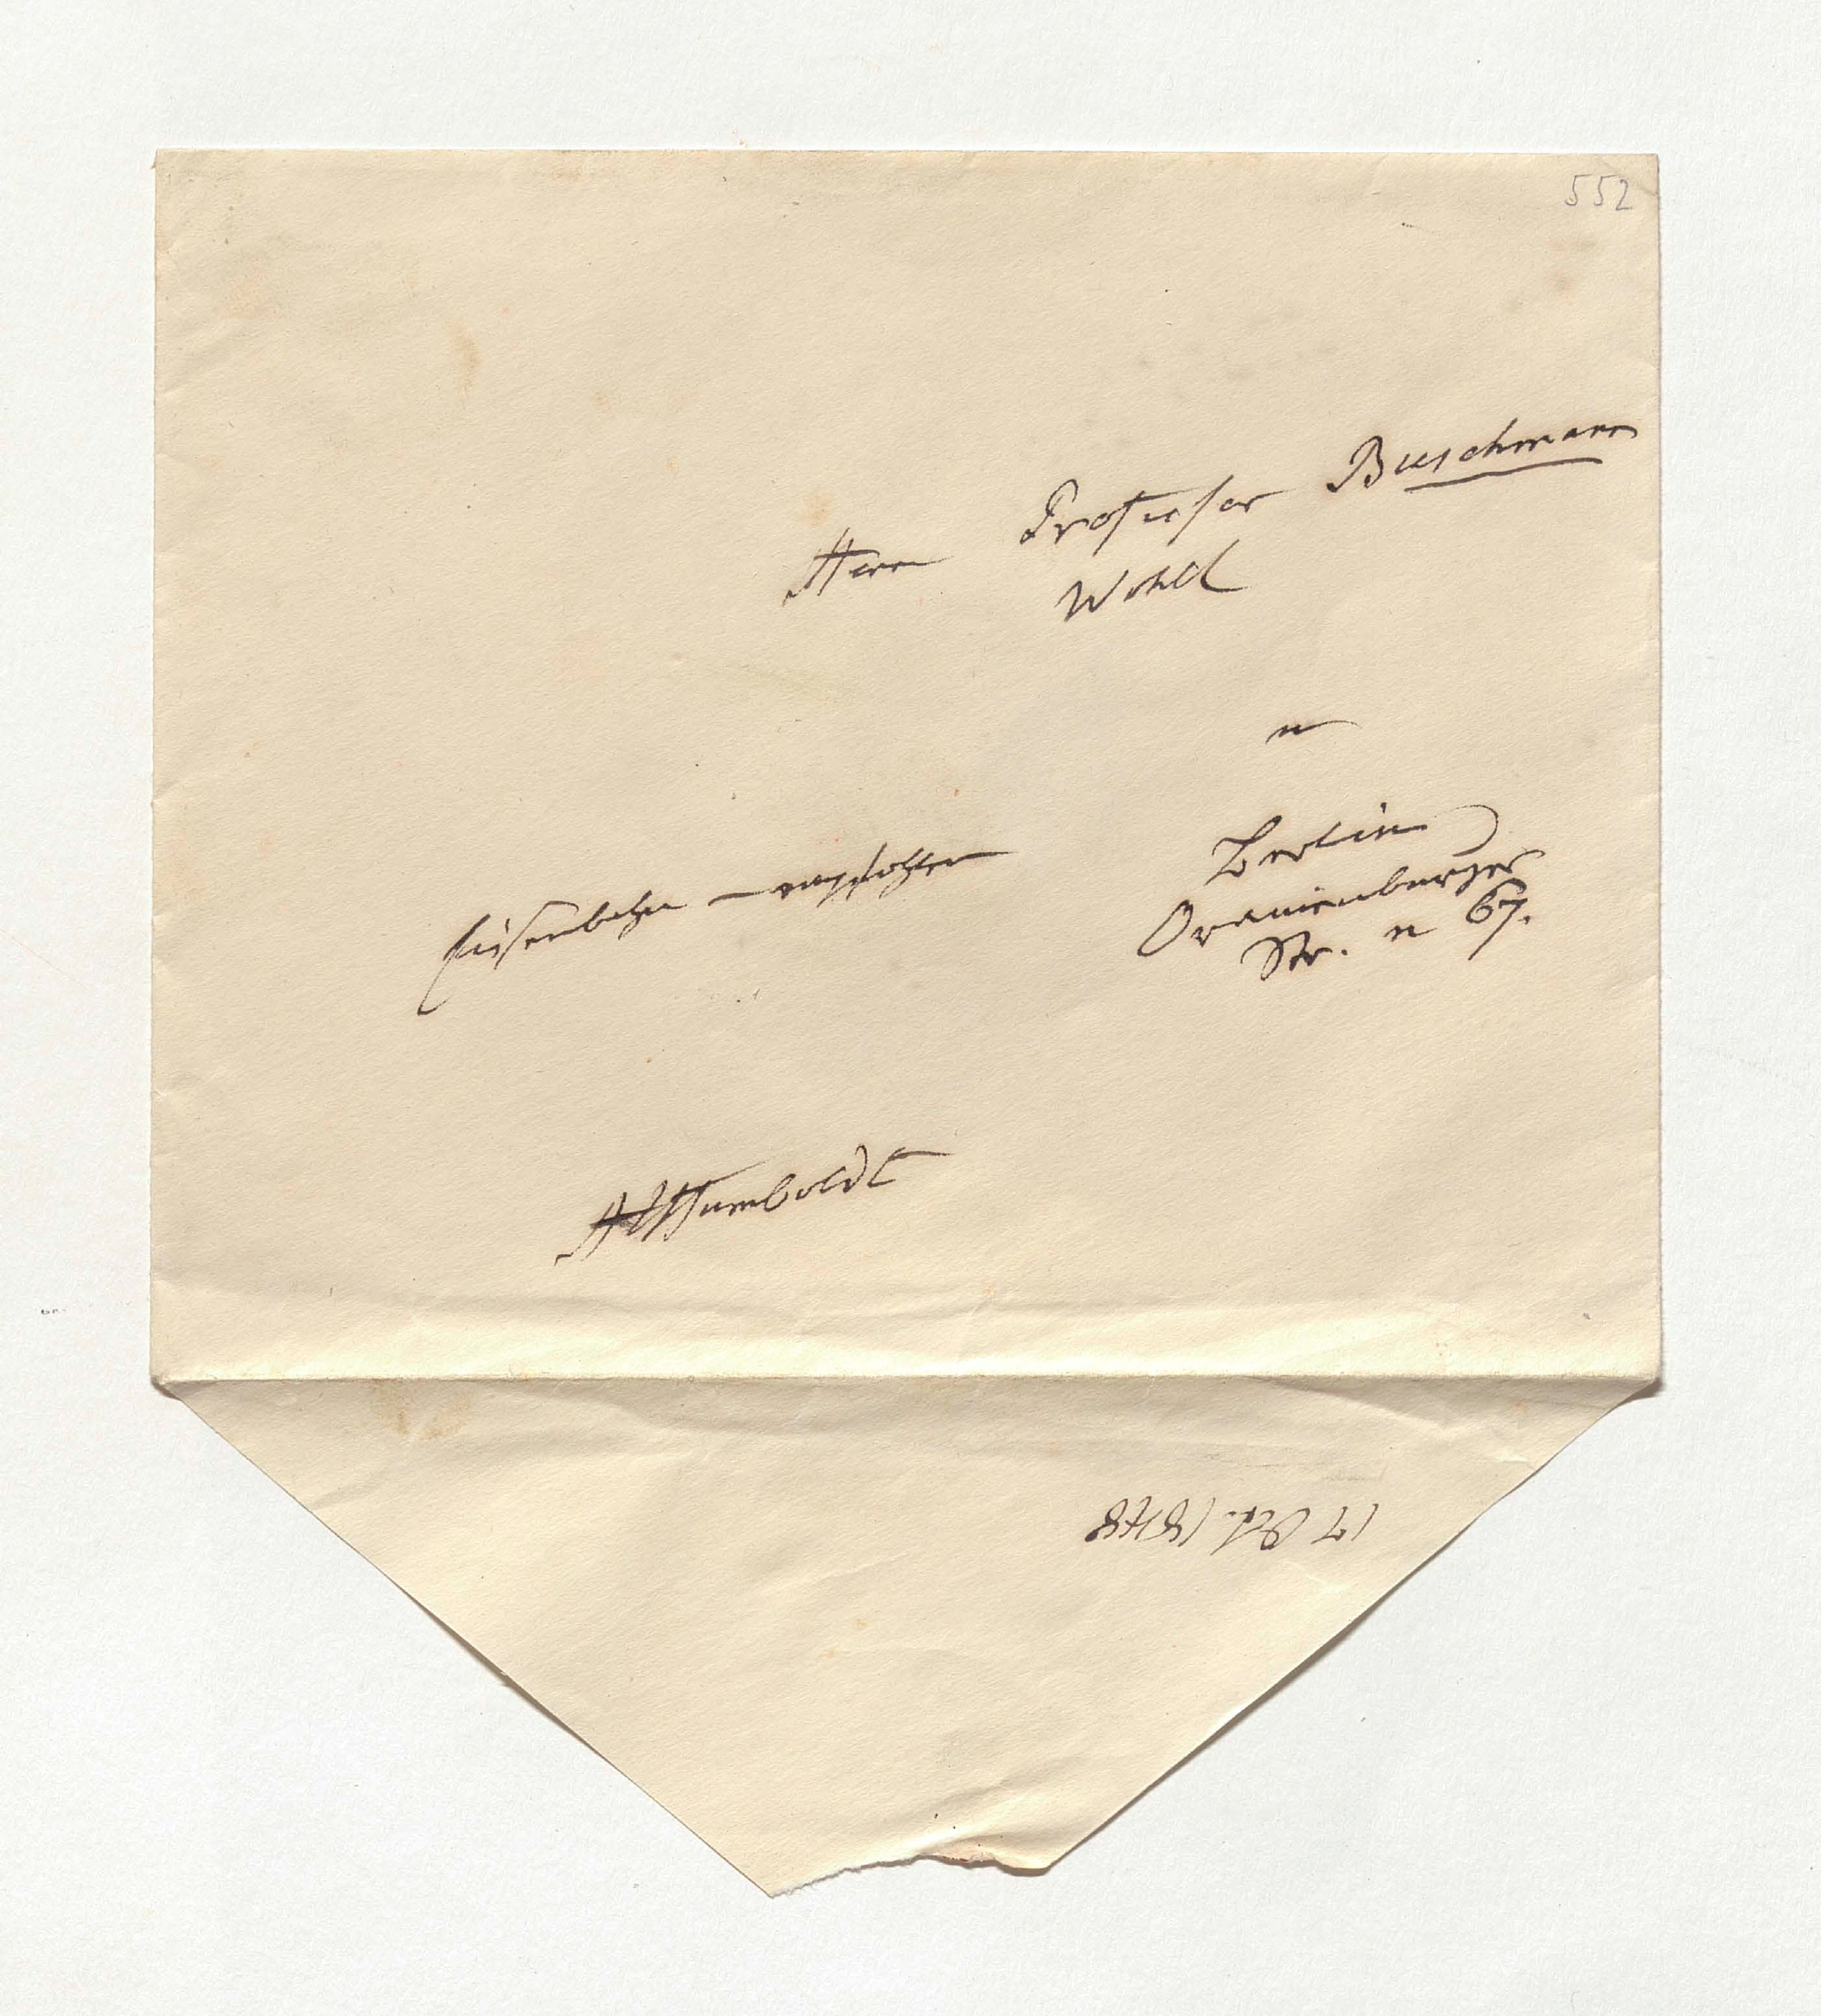 552
Herr Professor Buschmann
Wohl
in
Berlin
Oranienburger
Str. n 67.
Eisenbahn – empfohlen
AvHumboldt
17 Oct. 1848